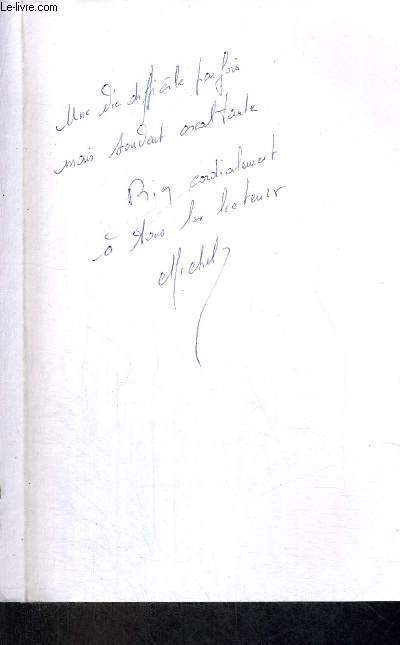 Le-livre.com
Une vie difficile parfois
mais souvent exaltante
Bien cordialement
à tous les lecteurs
Michel